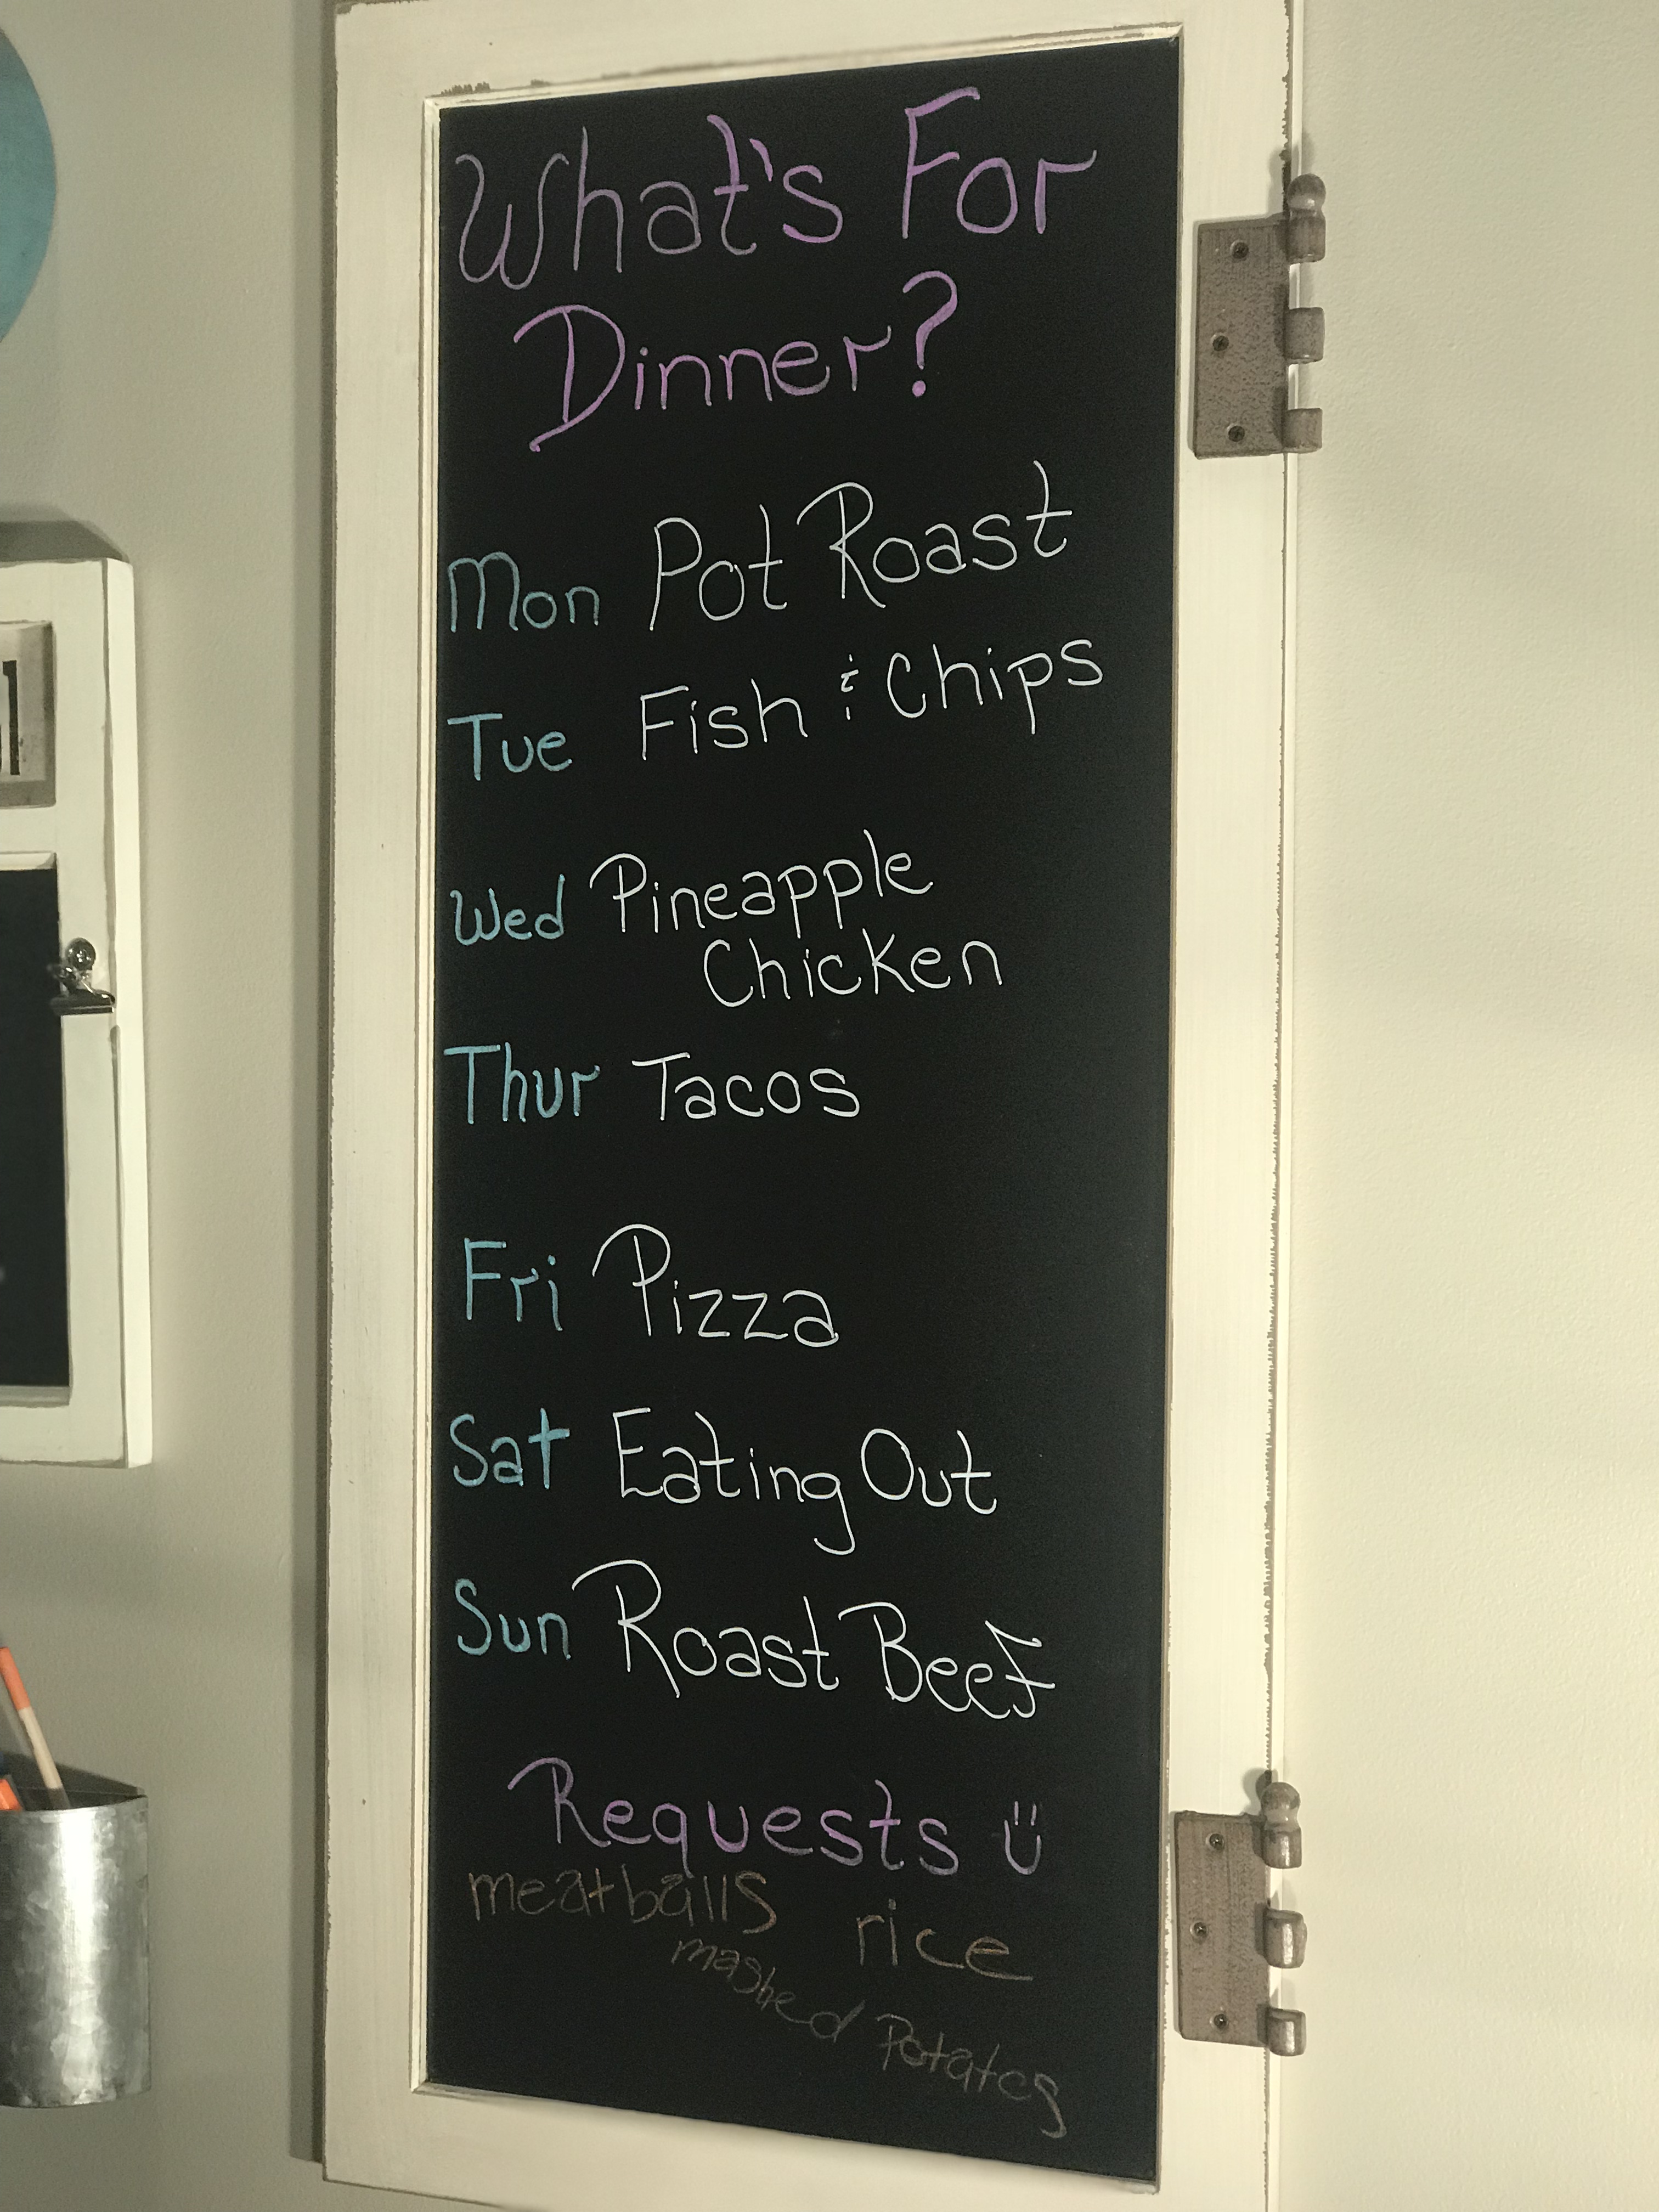 What's For
Dinner?
Mon Pot Roast
Tue Fish & Chips
Wed Pineapple
Chicken
Thur Tacos
Fri Pizza
Sat Eating Out
Sun Roast Beef
Requests
meatballs rice
mashed Potatoes